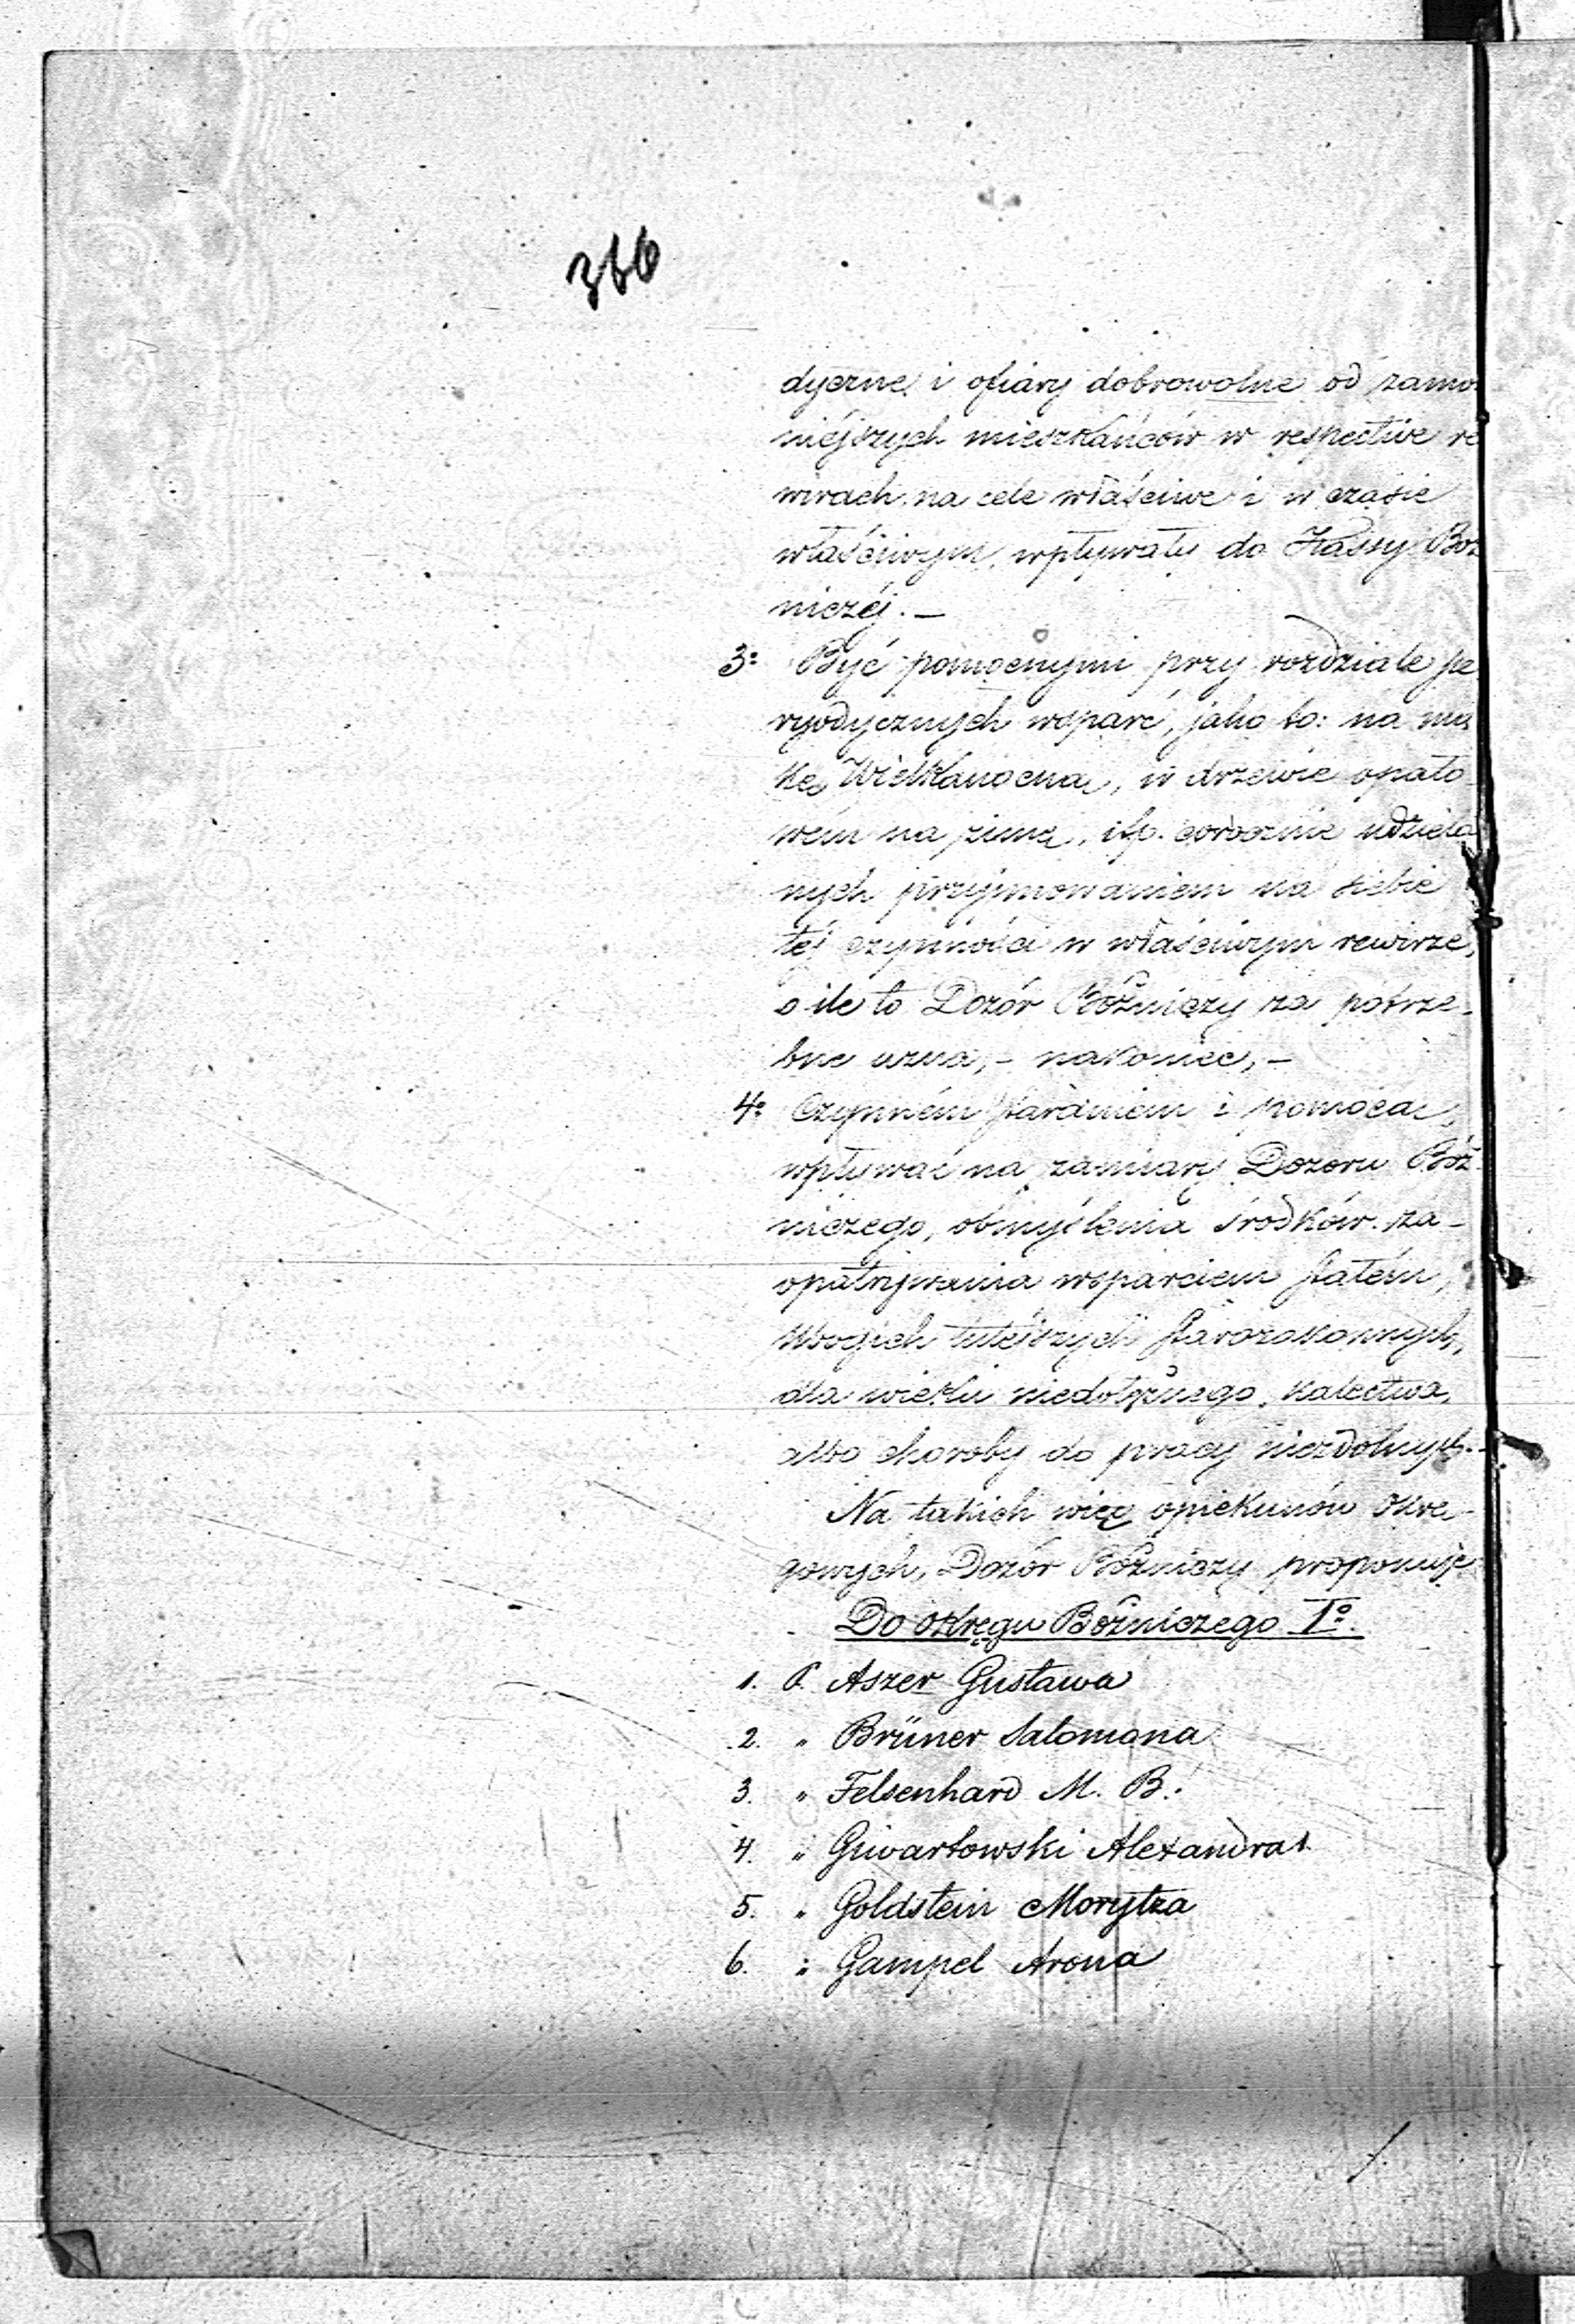 366
dyczne i ofiary dobrowolne od zamo
niéjszych mieszkańców w respective re
wirach na cele właściwe i w czasie
właściwym, wpływały do Kassy Boż
niczéj. –
3º Być pomocnymi przy rozdziale pe
ryodycznych wsparć, jako to: na mą
kę Wielkanocną, w drzewie opało
wém na zimę, itp. corocznie udziela
nych przyjmowaniem na siebie
téj czynności w właściwym rewirze,
o ile to Dozór Bóżniczy za potrze-
bne uzna, – nakoniec, –
4º Czynném staraniem i pomocą,
wpływać na zamiary Dozoru Bóż
niczego, obmyślenia środków za-
opatrywania wsparciem stałém,
ubogich tutéjszych starozakonnych,
dla wieku niedołężnego, kalectwa,
albo choroby do pracy niezdolnych. -
Na takich więc opiekunów okrę-
gowych, Dozór Bóżniczy proponuje
Do okręgu Bóżniczego Iº
1. P. Aszer Gustawa
2. „ Brüner Salomona
3. „ Felsenhard M. B.
4. „ Giwartowski Alexandra
5. „ Goldstein Morytza
6. „ Gampel Arona